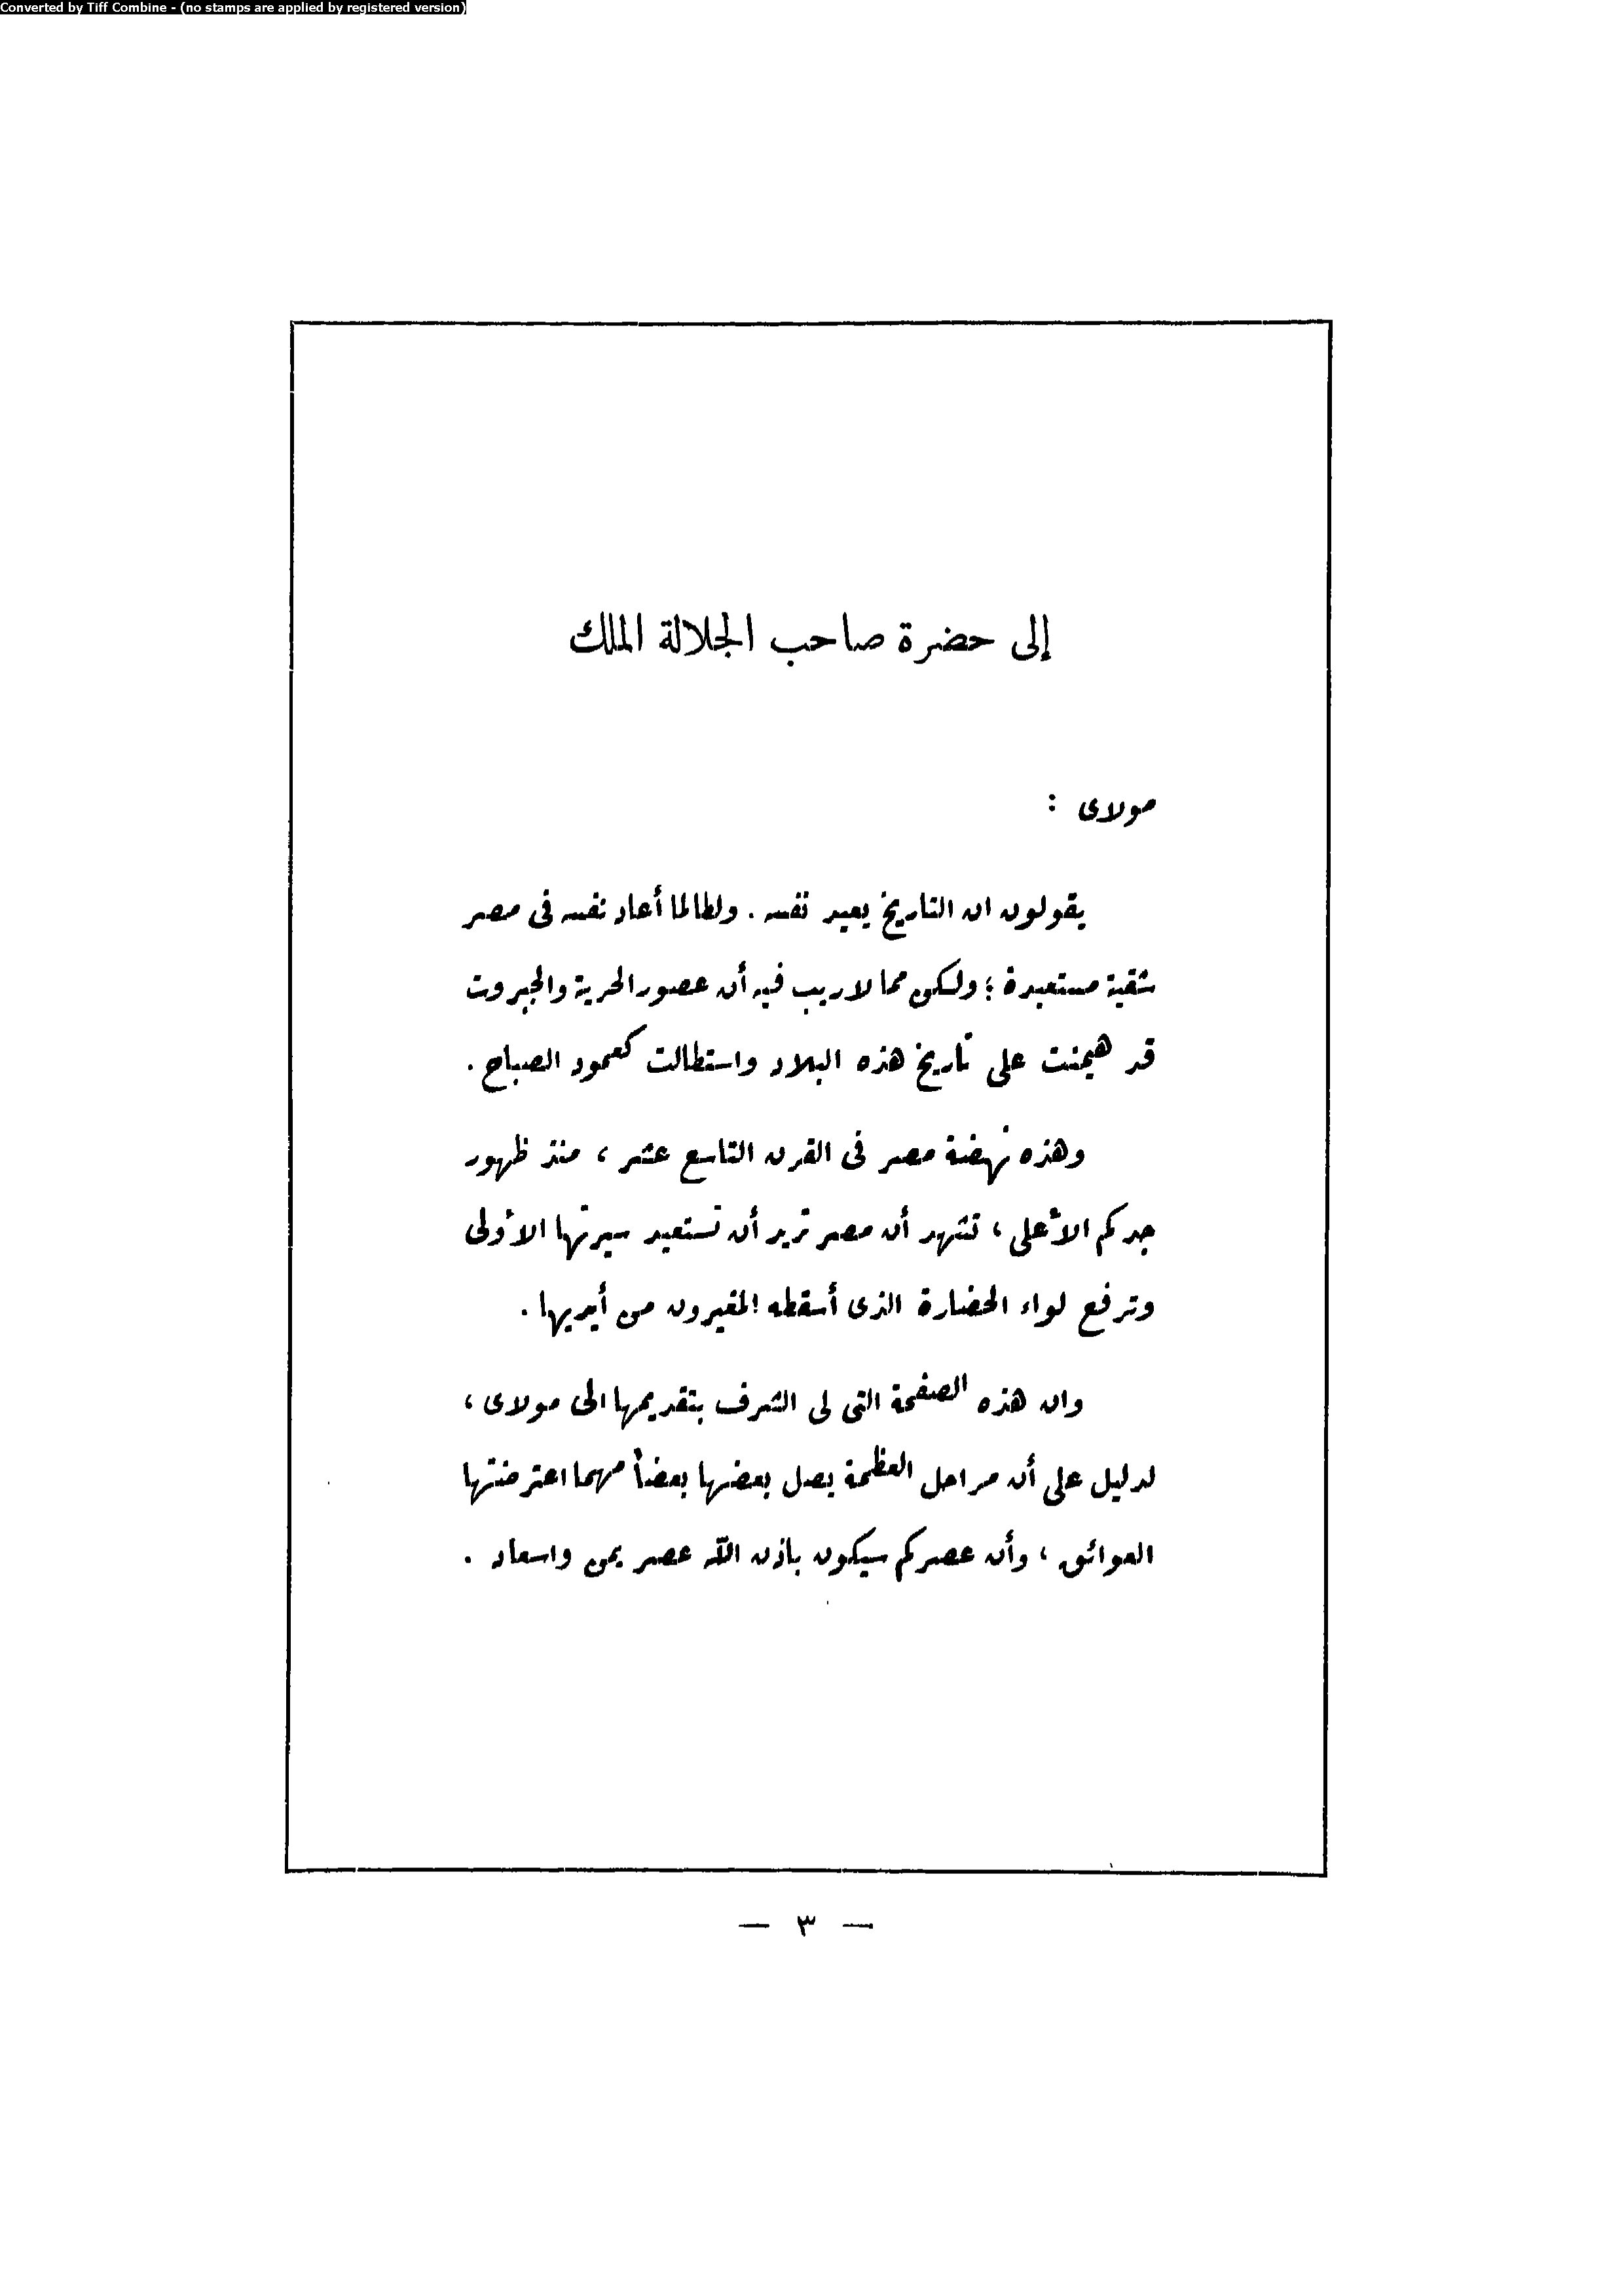 Converted by Tiff Combine - (no stamps are applied by registered version)
إلى حضرة صاحب الجلالة الملك
مولاى :
يقولون ان التاريخ يعيد نفسه . ولطالما أعاد نفسه فى مصر
شقية مستعبدة ؛ ولكن مما لا ريب فيه أن عصور الحرية والجبروت
قد هيمنت على تاريخ هذه البلاد واستطالت كعمود الصباح .
وهذه نهضة مصر فى القرن التاسع عشر ، منذ ظهور
جدكم الأعلى ، تشهد أن مصر تريد أن تستعيد سيرتها الأولى
وترفع لواء الحضارة الذى أسقطه المغيرون من أيديها .
وان هذه الصفحة التى لى الشرف بتقديمها الى مولاى ،
لدليل على أن مراحل العظمة يصل بعضها بعضاً مهما اعترضتها
العوائق ، وأن عصركم سيكون باذن الله عصر يمن واسعاد .
— ٣ —